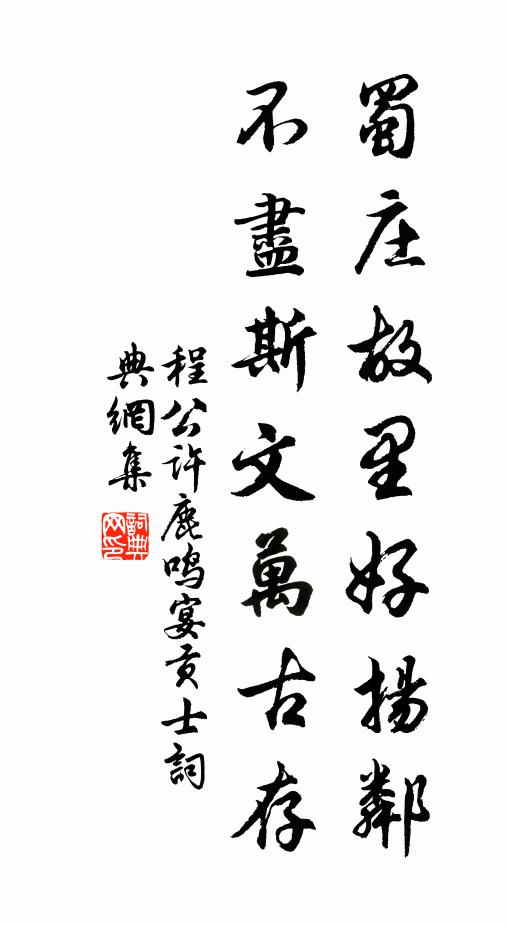 蜀庄故里好揚鄰
不盡斯文萬古存
程公許鹿鳴宴貢士詞
典網集
詞典
网印